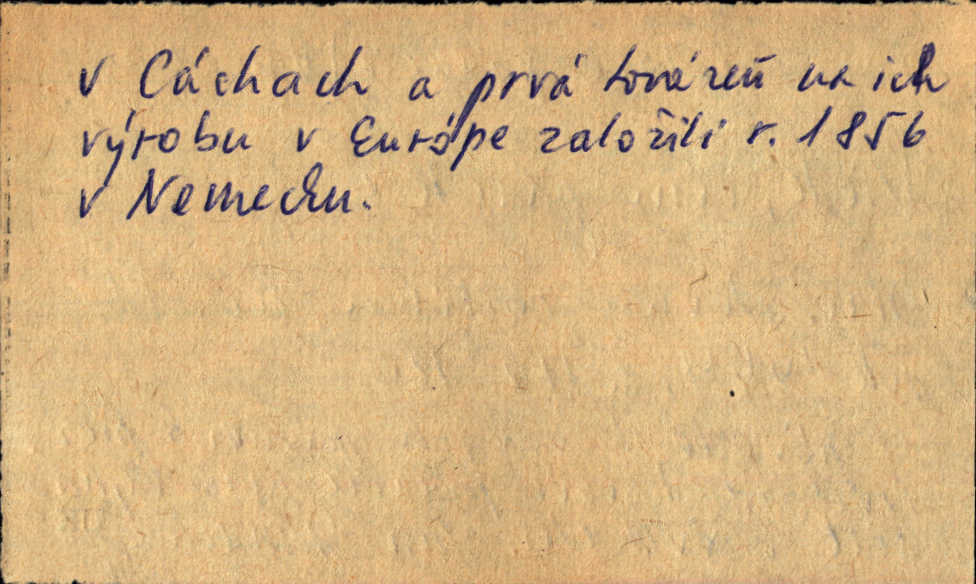 v Cáchach a prvá továreň na ich
výrobu v Európe založili r. 1856
v Nemecku.